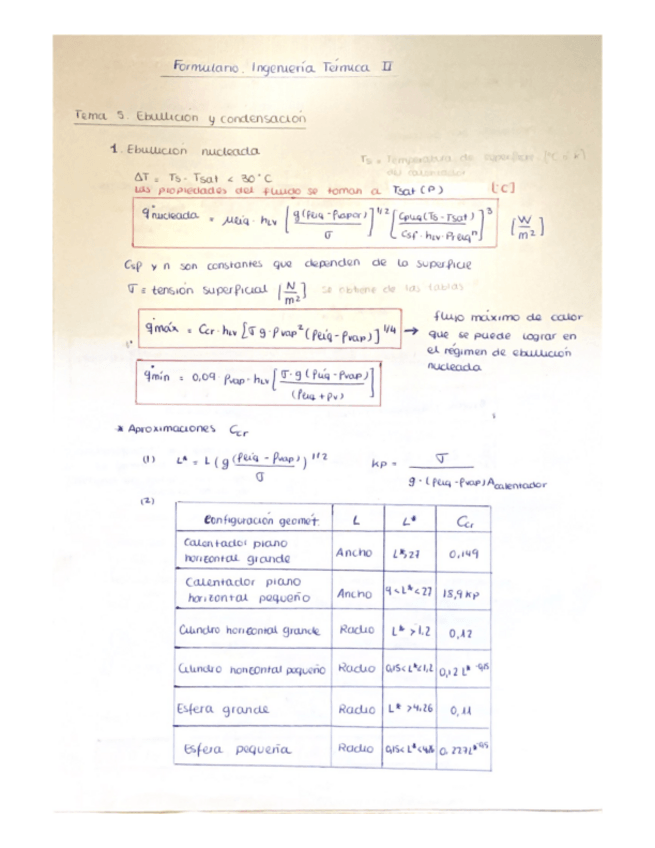 Formulario. Ingeniería Térmica II
Tema 5. Ebullición y condensación
1. Ebullición nucleada
Ts = Temperatura de superficie (°C = K)
del calentador
ΔT = Ts - Tsat < 30°C
Las propiedades del fluido se toman a Tsat (P) [°C]
q̇nucleada = μliq · hlv [g(ρliq - ρvapor)/σ]^1/2 [Cpliq(Ts - Tsat)/Csf · hlv · Prliq^n]^3 [W/m²]
Csp y n son constantes que dependen de la superficie
σ = tensión superficial [N/m²] se obtiene de las tablas
q̇máx = Ccr · hlv [σ g · ρvap² (ρliq - ρvap)]^1/4 → flujo máximo de calor
que se puede lograr en
el régimen de ebullición
nucleada
q̇mín = 0,09 · ρvap · hlv [σ · g (ρliq - ρvap)/(ρliq + ρv)]
* Aproximaciones Ccr
(1) L* = L (g (ρliq - ρvap)/σ)^1/2 kp = σ/g · (ρliq - ρvap) Acalentador
(2)
Configuración geomét. L L* Ccr
Calentador plano
horizontal grande Ancho L*>27 0,149
Calentador plano
horizontal pequeño Ancho 9<L*<27 18,9 kp
Cilindro horizontal grande Radio L* > 1,2 0,12
Cilindro horizontal pequeño Radio 0,15<L*<1,2 0,12 L*^-0,25
Esfera grande Radio L* > 4,26 0,11
Esfera pequeña Radio 0,15< L*<4,26 0,227L*^-0,5